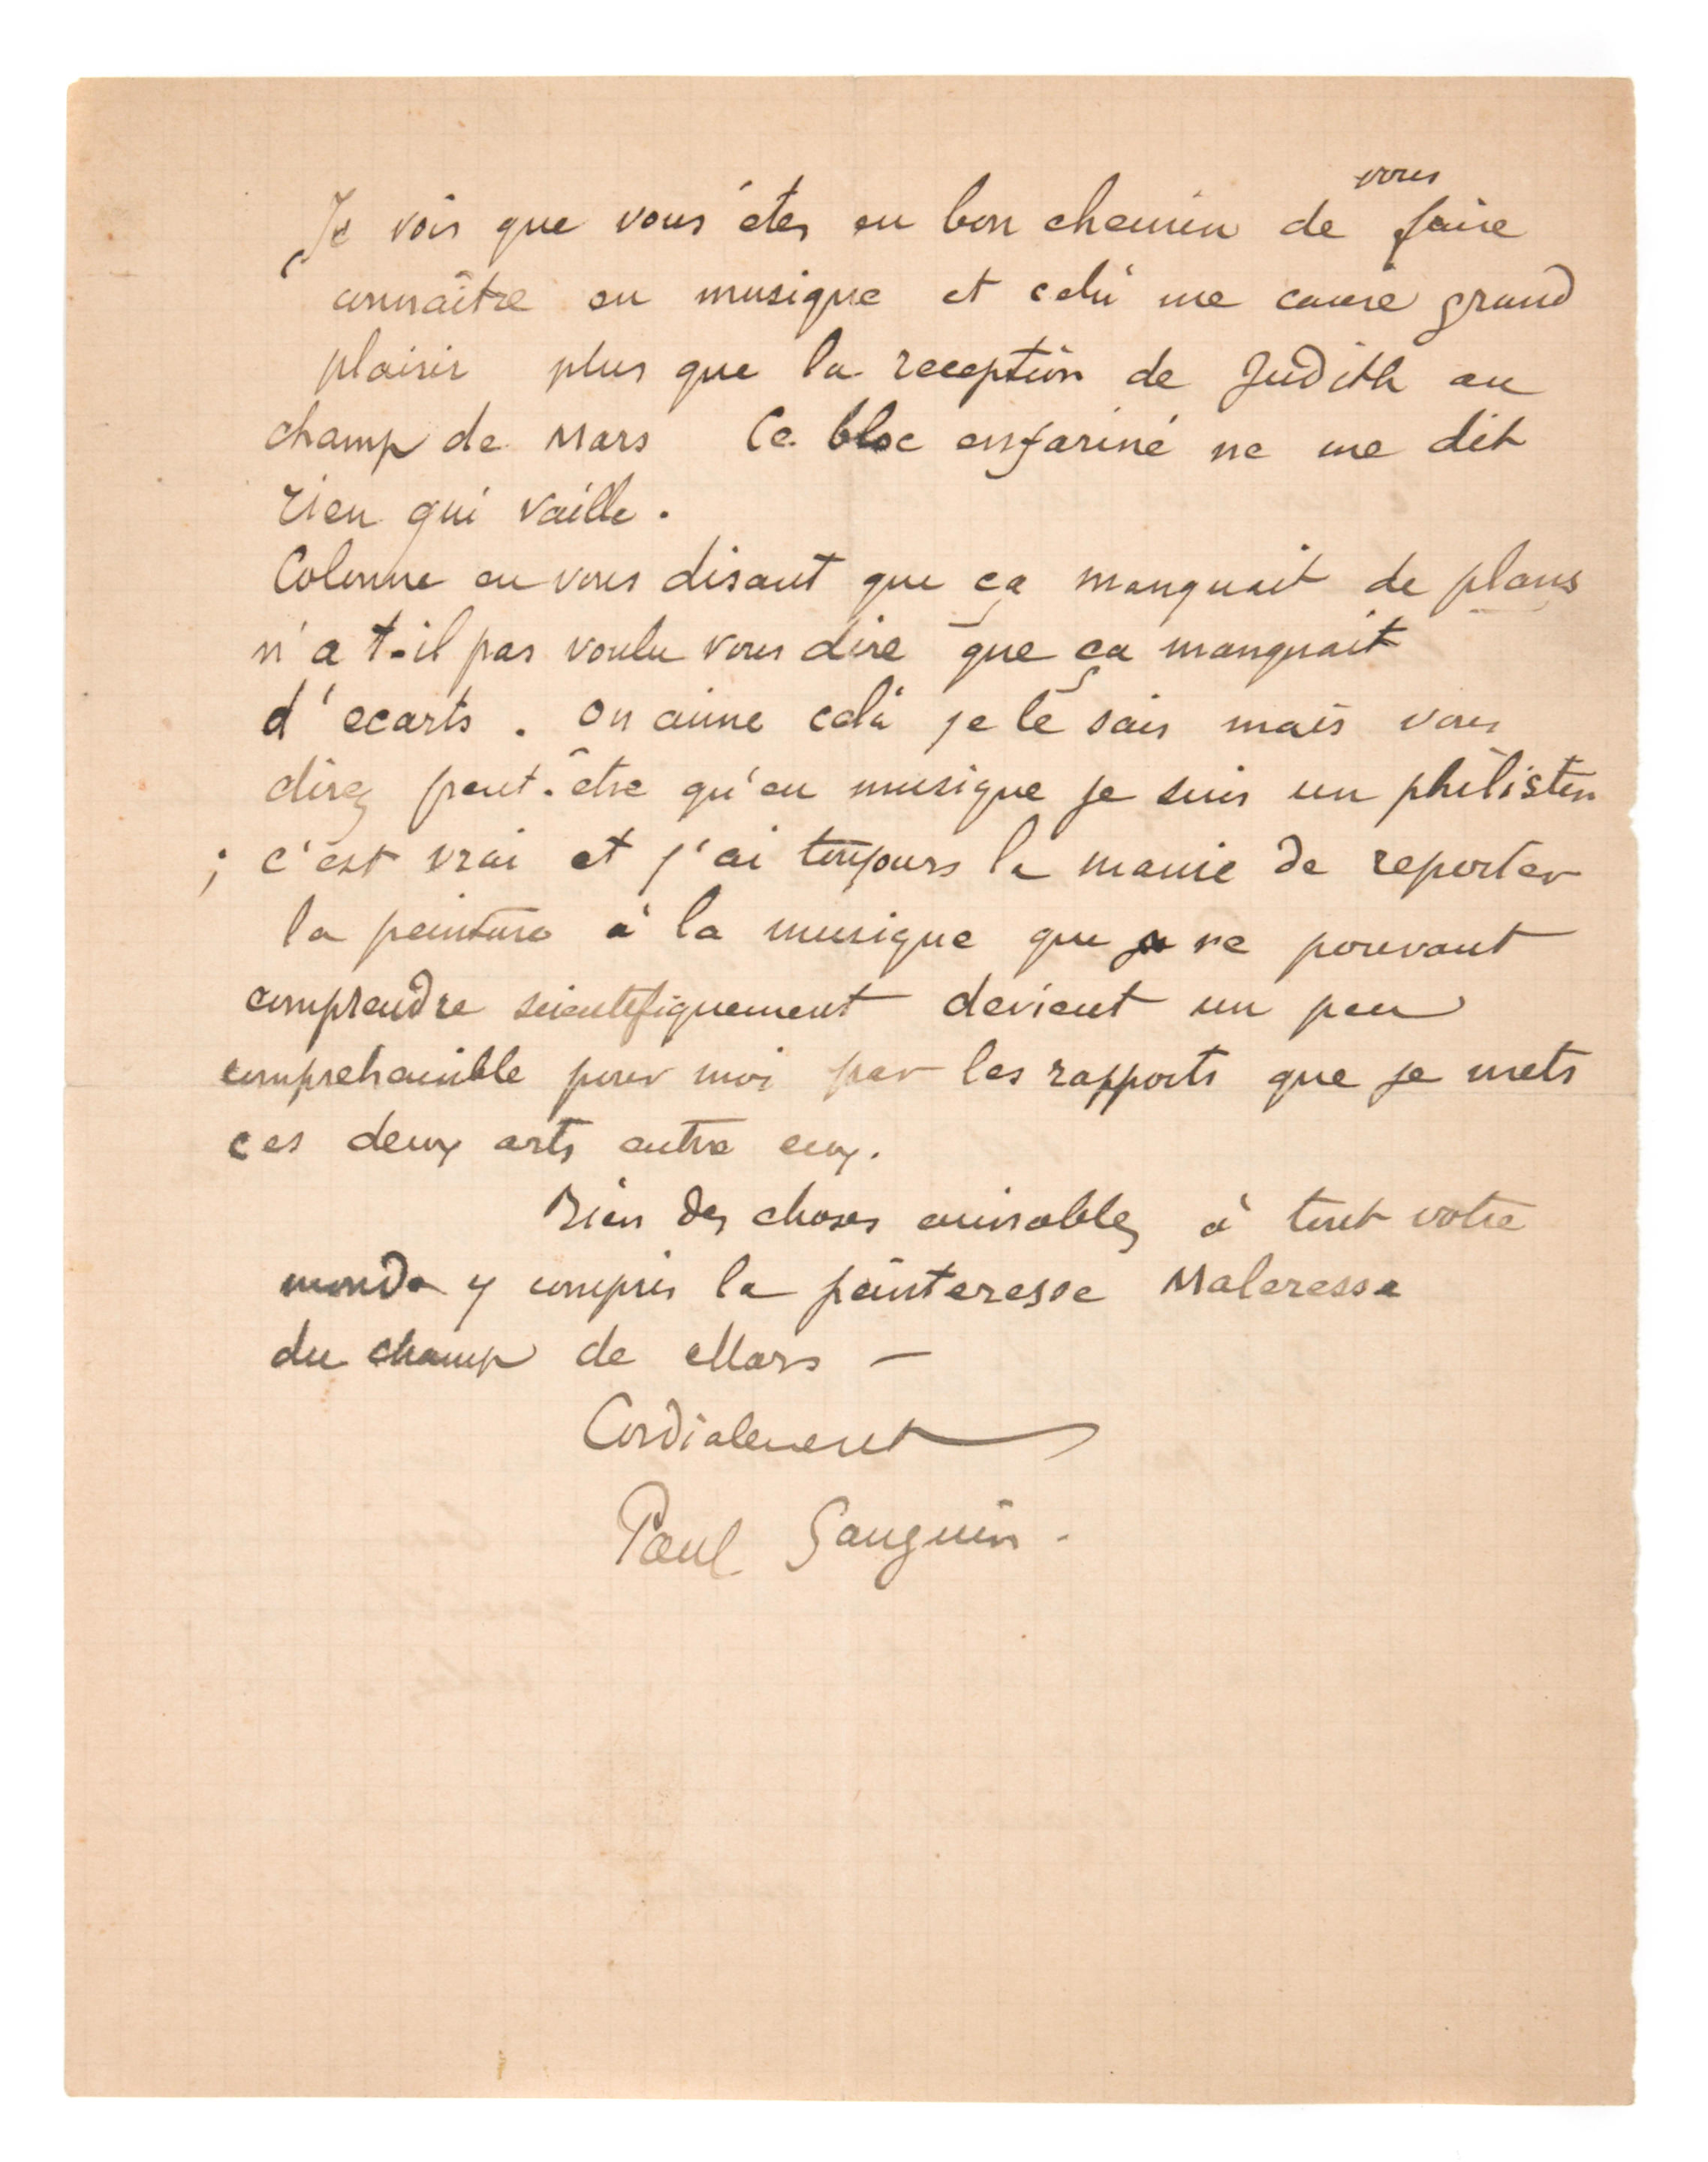 vous
Je vois que vous étes en bon chemin de faire
connaître en musique et celà me cause grand
plaisir plus que la reception de Judith au
champ de Mars Ce bloc enfariné ne me dit
rien qui vaille.
Colonne en vous disant que ça manquait de plans
n'a t-il pas voulu vous dire que ça manquait
d'ecarts. On aime celà je le sais mais vous
direz peut-être qu'en musique je suis un philistin
; c'est vrai et j'ai toujours la manie de reporter
la peinture à la musique que ne pouvant
comprendre scientifiquement devient un peu
comprehensible pour moi par les rapports que je mets
ces deux arts entre eux.
Bien des choses aimables à tout votre
monde y compris la peinteresse Maleresse
du champ de Mars —
Cordialement
Paul Gauguin.